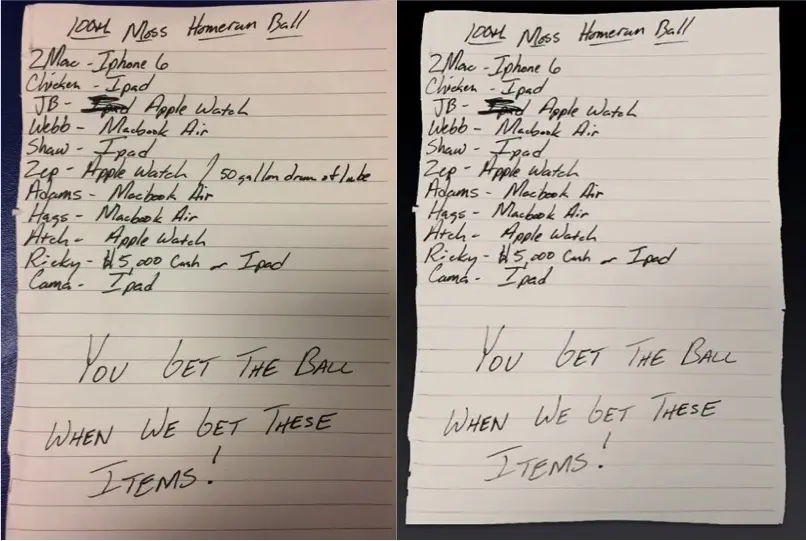 100th Moss Homerun Ball
2Mac - Iphone 6
Chicken - Ipad
JB - Ipad Apple Watch
Webb - Macbook Air
Shaw - Ipad
Zep - Apple Watch / 50 gallon drum of lube
Adams - Macbook Air
Hags - Macbook Air
Atch - Apple Watch
Ricky - $5,000 Cash or Ipad
Cama - Ipad
You Get The Ball
When We Get These
Items!
100th Moss Homerun Ball
2Mac - Iphone 6
Chicken - Ipad
JB - Ipad Apple Watch
Webb - Macbook Air
Shaw - Ipad
Zep - Apple Watch
Adams - Macbook Air
Hags - Macbook Air
Atch - Apple Watch
Ricky - $5,000 Cash or Ipad
Cama - Ipad
You Get The Ball
When We Get These
Items!